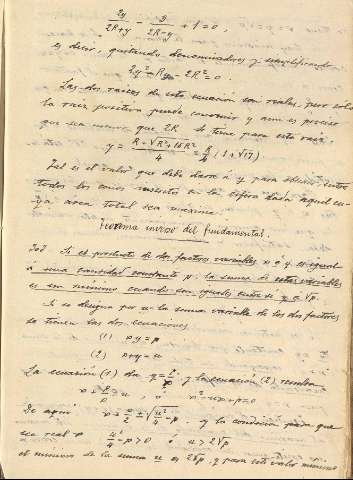 2y/(2R+y) - y/(2R-y) + 1 = 0,
es decir, quitando denominadores y simplificando
2y² - Ry - 2R² = 0.
Las dos raices de esta ecuación son reales, pero solo
la raiz positiva puede convenir y aun es preciso
que sea menor que 2R. Se tiene para esta raiz
y = (R + √(R²+16R²))/4 = R/4 (1 + √17)
Tal es el valor que debe darse á y para obtener entre
todos los conos inscritos en la esfera dada aquel cu-
ya area total sea maxima.
Teorema inverso del fundamental.
Si el producto de dos factores variables x é y es igual
á una cantidad constante p la suma de estas variables
es un minimo cuando son iguales entre si y á √p.
Si se designa por u la suma variable de los dos factores
se tienen las dos ecuaciones
(1) xy = p
(2) x+y = u
La ecuación (1) da y = p/x y la ecuación (2) resulta
x + p/x = u, ó x² - ux + p = 0
De aqui x = u/2 ± √(u²/4 - p). y la condición para que
sea real x u²/4 - p > 0 ó u > 2√p
el minimo de la suma u es 2√p y para este valor minimo